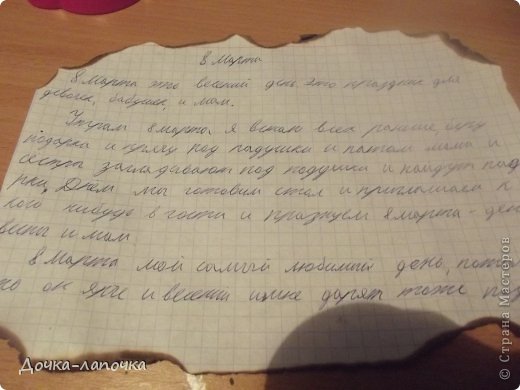 8 Марта
8 Марта это веселий день. Это праздник для
девочек, бабушек, и мам.
Утрам 8 марта я встаю всех раньше, беру
подарки и прячу под падушки и патом мама и
сёстры загладавают под подушки и найдут пада
рки. Днём мы готовим стол и приглашаем к
кого нибудь в гости и празнуем 8 марта - ден
весны и мам.
8 Марта мой самый любимый день, потом
го он ярче и веселий и мне дарят тоже
Дочка-лапочка
© Страна Мастеров